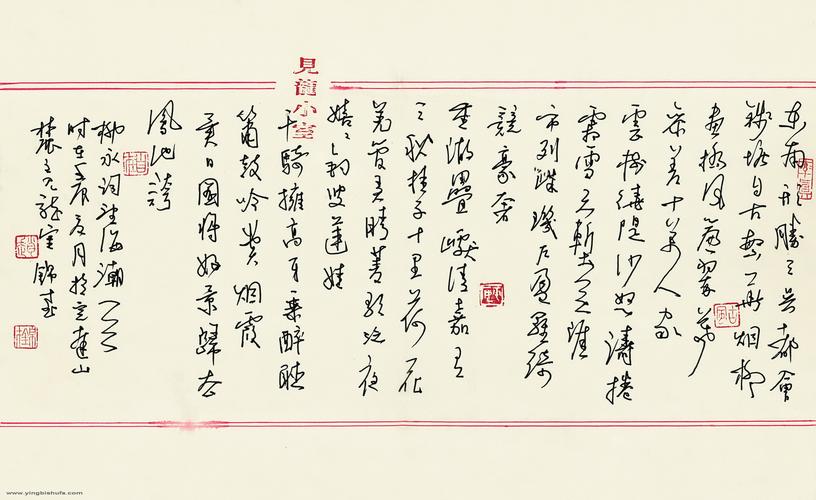 見龍小室
東南形勝三吳都會
錢塘自古繁華烟柳
畫橋風簾翠幕
參差十萬人家
雲樹繞隄沙怒濤捲
霜雪天塹無涯
市列珠璣戶盈羅綺
競豪奢
重湖疊巘清嘉有
三秋桂子十里荷花
羌管弄晴菱歌泛夜
嬉〻釣叟蓮娃
千騎擁高牙乘醉聽
簫鼓吟賞烟霞
異日圖將好景歸去
鳳池誇
柳永詞望海潮
時在辰夏月於山
之九龍室錦
www.yingbishufa.com